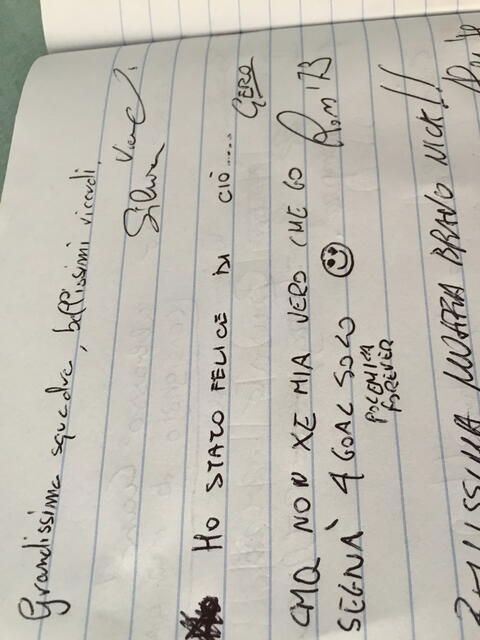 Grandissima squadra, bellissimi ricordi.
Silvia
HO STATO FELICE DI CIÒ.....
GERO
CMQ NON XE MIA VERO CHE GO
SEGNÀ 4 GOAL SOLO
POLEMICA
FOREVER
BRAVO NICK!!